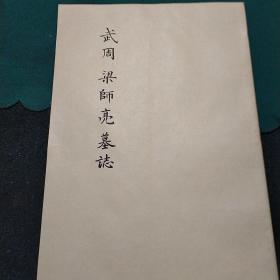 武周 梁師亮墓誌